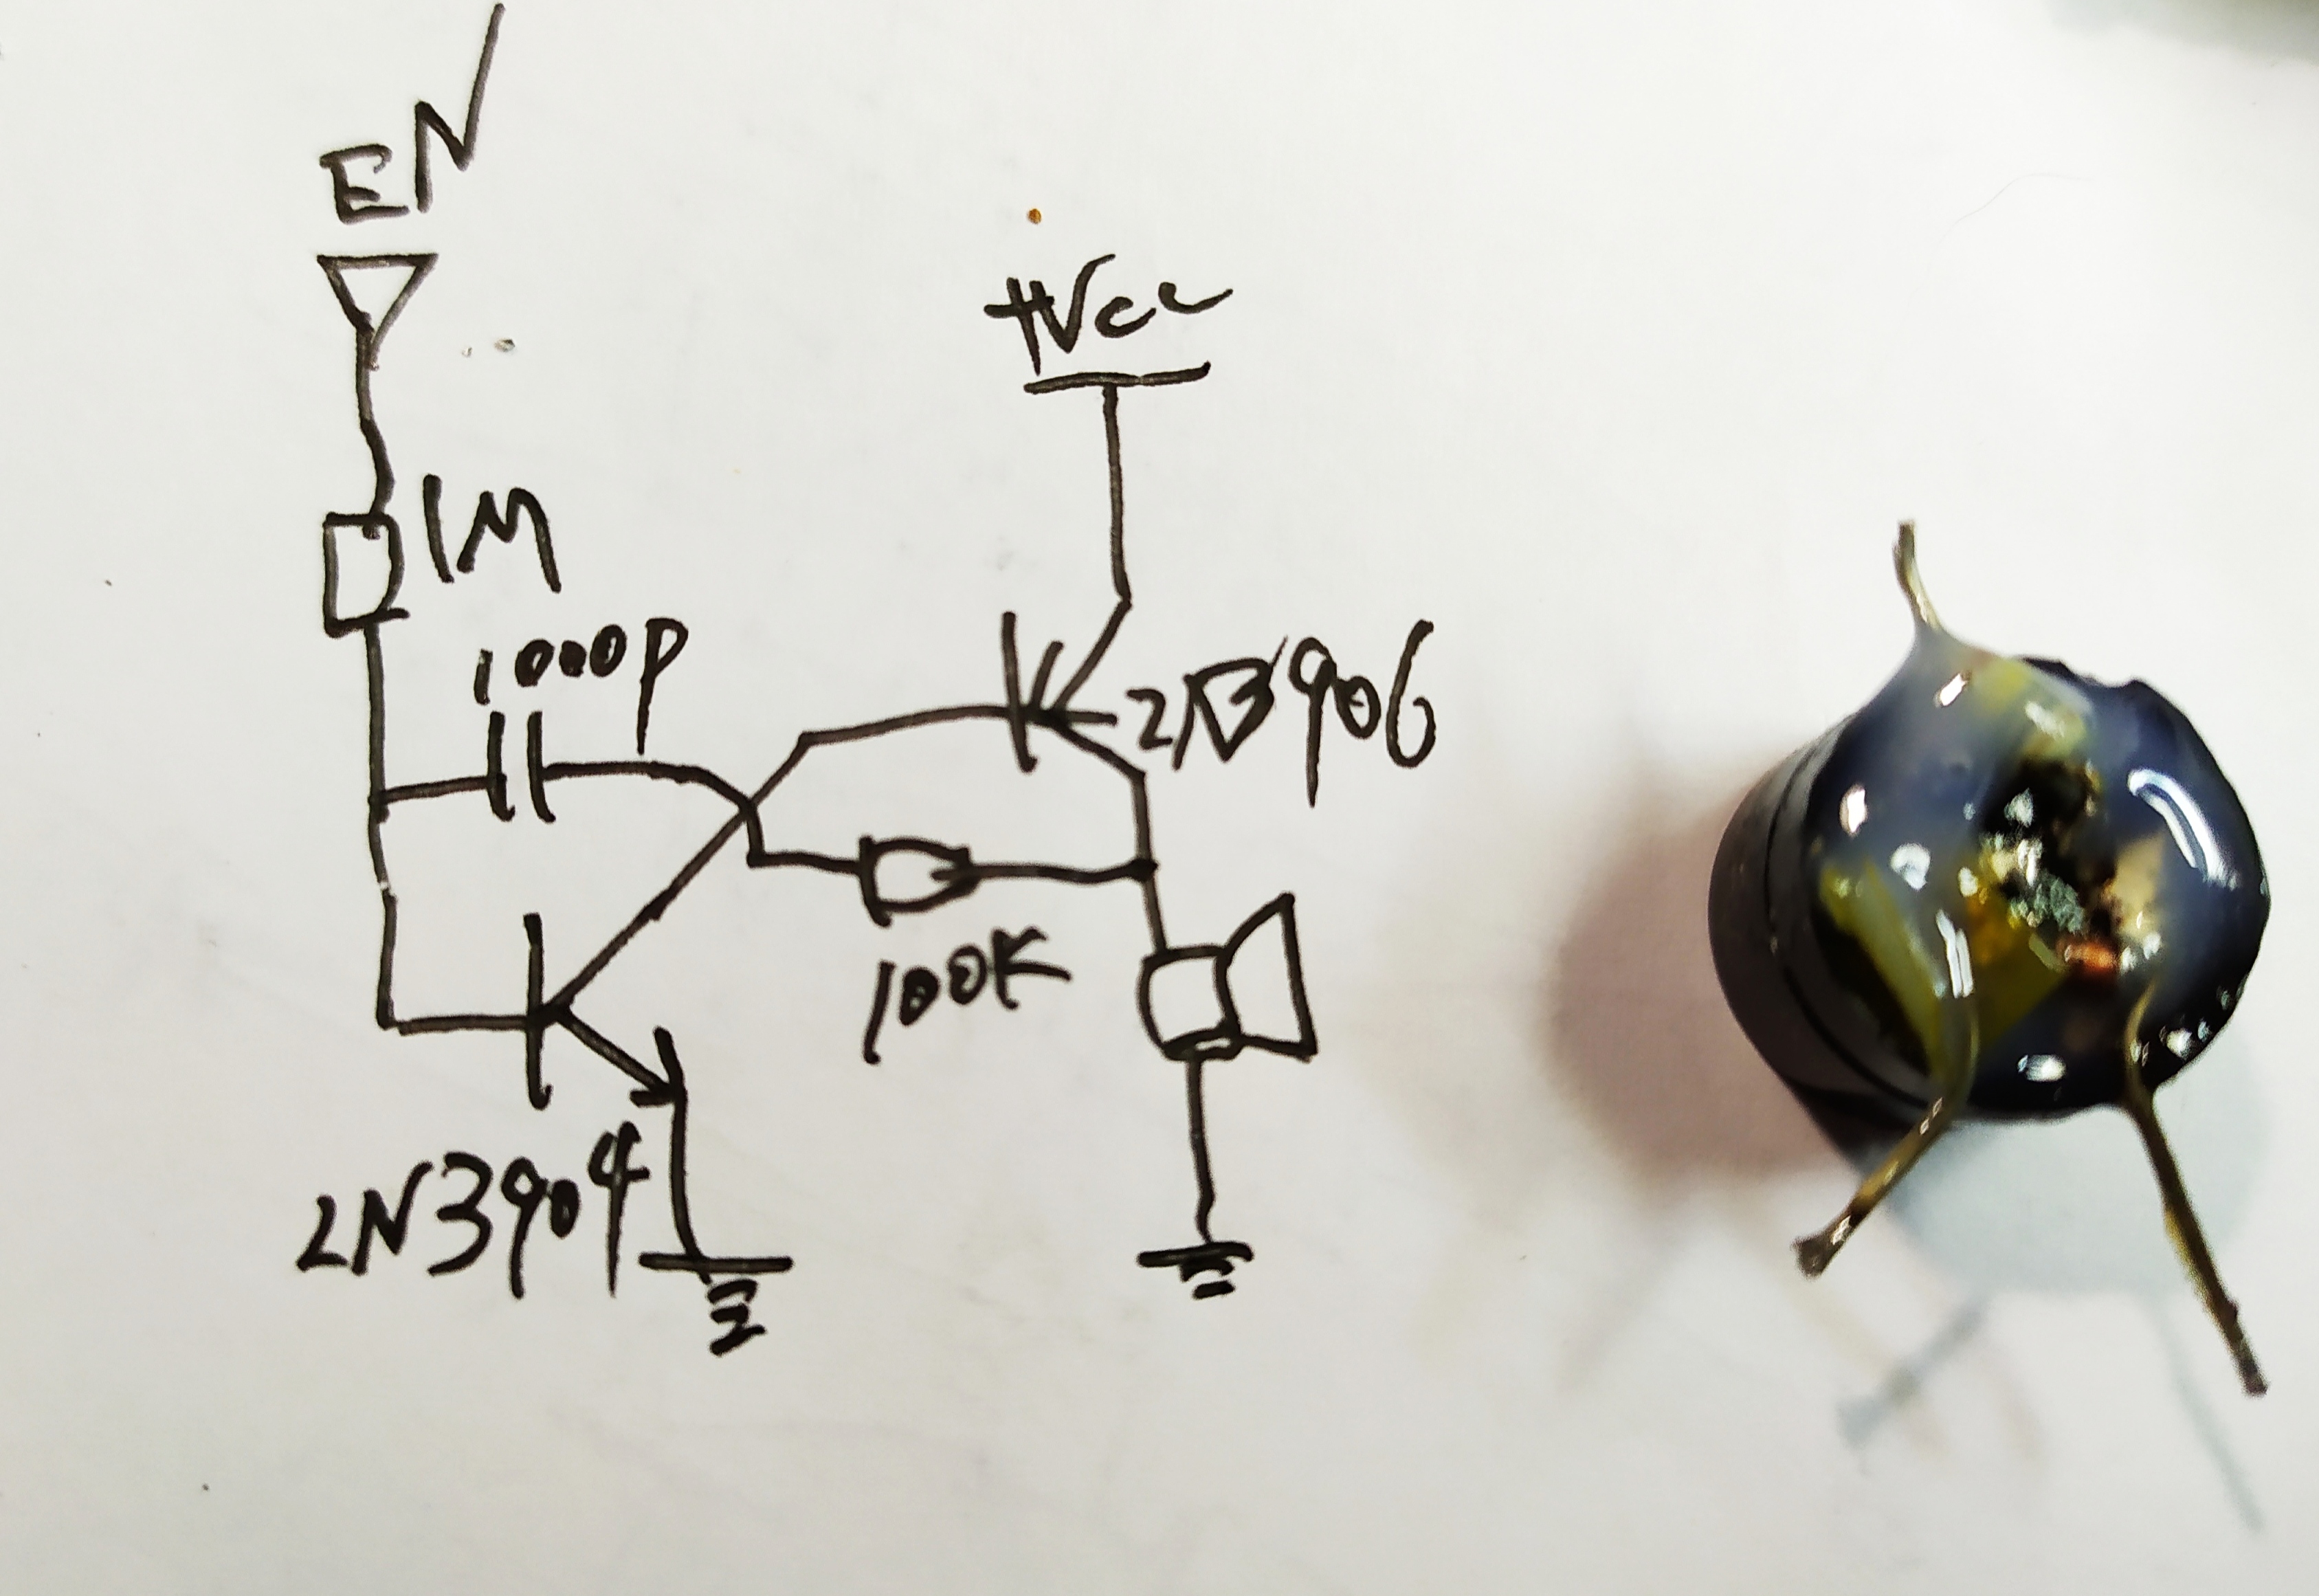 EN
+Vcc
1M
1000P
2N3906
100K
2N3904